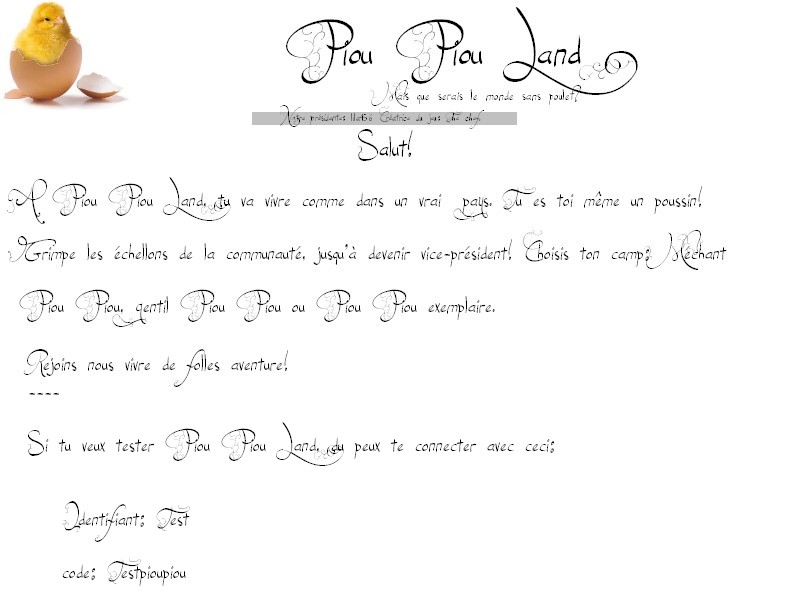 Piou Piou Land
Mais que serais le monde sans poulet?
Créatrice du jeu:
Salut!
A Piou Piou Land, tu va vivre comme dans un vrai pays. Tu es toi même un poussin!
Grimpe les échellons de la communauté, jusqu'à devenir vice-président! Choisis ton camp: Méchant
Piou Piou, gentil Piou Piou ou Piou Piou exemplaire.
Rejoins nous vivre de folles aventure!
----
Si tu veux tester Piou Piou Land, du peux te connecter avec ceci:
Identifiant: Test
code: Testpioupiou